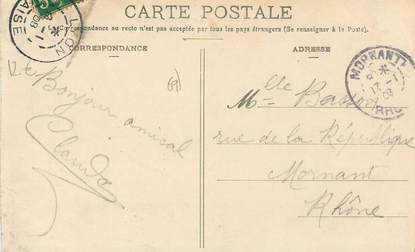 CARTE POSTALE
La Correspondance au recto n'est pas acceptée par tous les pays étrangers (Se renseigner à la Poste).
CORRESPONDANCE
ADRESSE
LYON
VAISE
MORNANT
RHO
Bonjour amical
Claude
69
Mlle
rue de la République
Mornant
Rhône